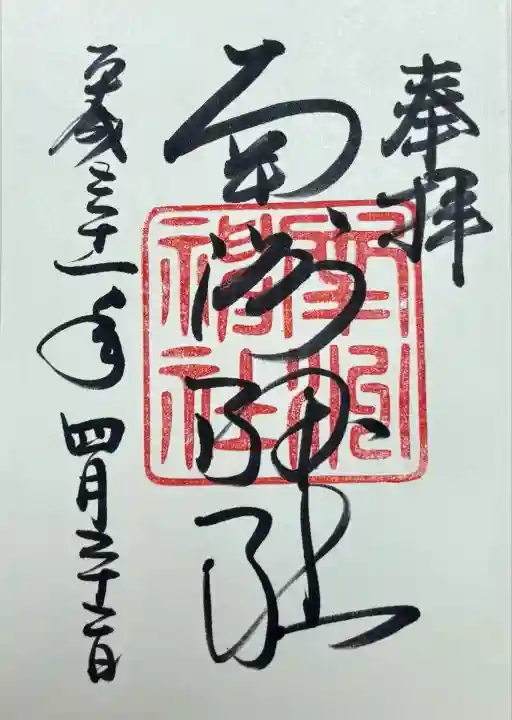 奉拝
南洲神社
平成三十一年四月二十二日